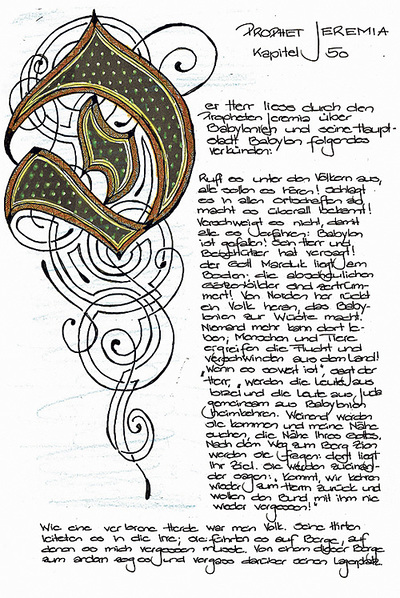 Prophet Jeremia
Kapitel 50
er Herr liess durch den
Propheten Jeremia über
Babylonien und seine Haupt-
stadt Babylon folgendes
verkünden:
Ruft es unter den Völkern aus,
alle sollen es hören! Schlagt
es in allen Ortschaften an,
macht es überall bekannt!
Verschweigt es nicht, damit
alle es erfahren: Babylon
ist gefallen! Sein Herr und
Beschützer hat versagt!
der Gott Marduk liegt am
Boden, die abscheulichen
Götzenbilder sind zertrüm-
mert! Von Norden her rückt
ein Volk heran, das Baby-
lonien zur Wüste macht.
Niemand mehr kann dort le-
ben; Menschen und Tiere
ergreifen die Flucht und
verschwinden aus dem Land!
"Wenn es soweit ist", sagt der
Herr, "werden die Leute aus
Israel und die Leute aus Juda
gemeinsam aus Babylonien
heimkehren. Weinend werden
sie kommen und meine Nähe
suchen, die Nähe ihres Gottes.
Nach dem Weg zum Berg Zion
werden sie fragen; dort liegt
ihr Ziel. Sie werden zueinan-
der sagen: "Kommt, wir kehren
wieder zum Herrn zurück und
wollen den Bund mit ihm nie
wieder vergessen!"
Wie eine verlorene Herde war mein Volk. Seine Hirten
leiteten es in die Irre; sie führten es auf Berge, auf
denen es mich vergessen musste. Von einem dieser Berge
zum andern zog es und vergass darüber seinen Lagerplatz.